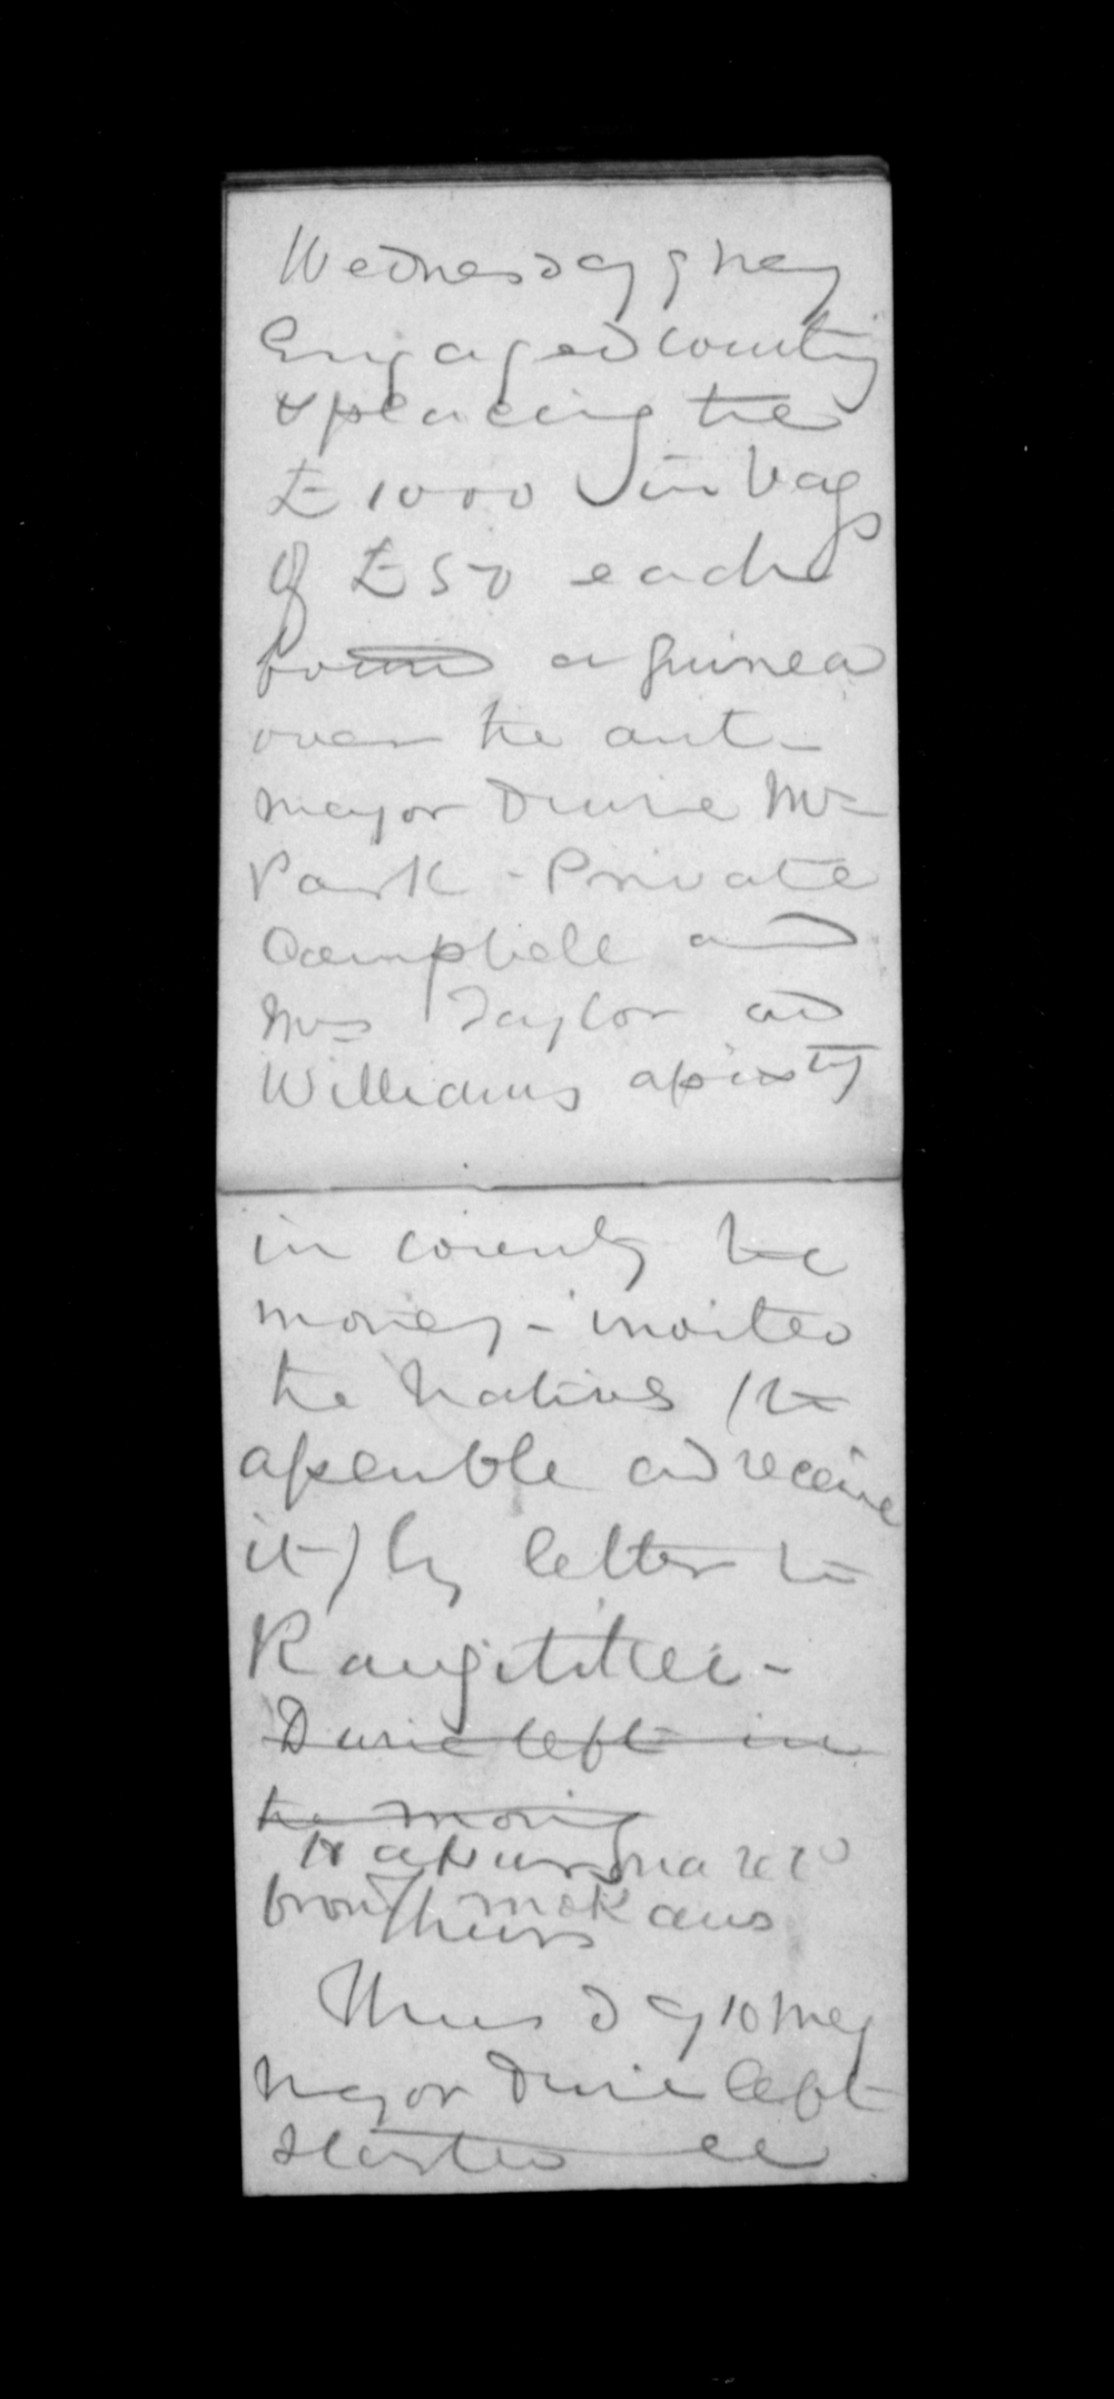 Wednesday 9 May
Engaged counting
& placing the
£1000 in bags
of £50 each
found a guinea
over the amt -
Major Durie Mr
Park - Private
Campbell and
Mrs Taylor and
Williams assistg
in countg the
money - invited
the Natives (to
assemble and receive
it) by letter to
Rangitikei -
Durie left in
the morning
Thursday 10 May
Major Durie left
started